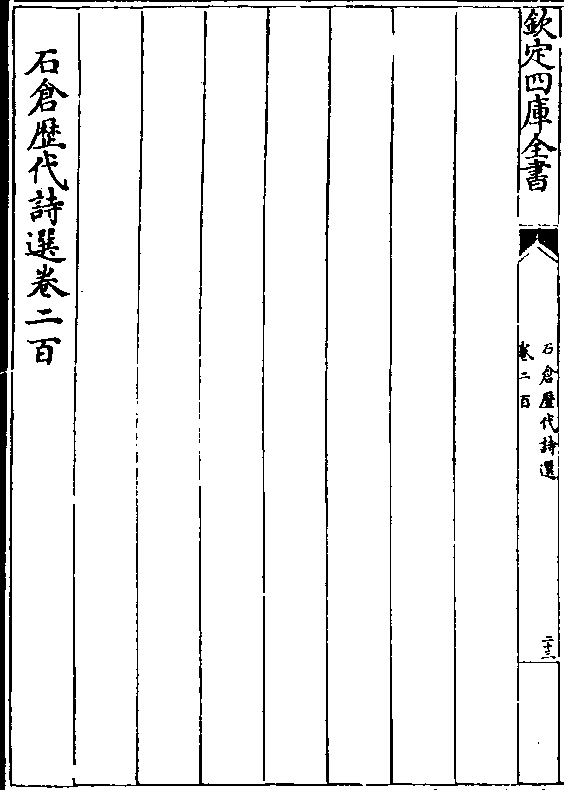 欽定四庫全書
石倉歷代詩選
卷二百
二十三
石倉歷代詩選卷二百